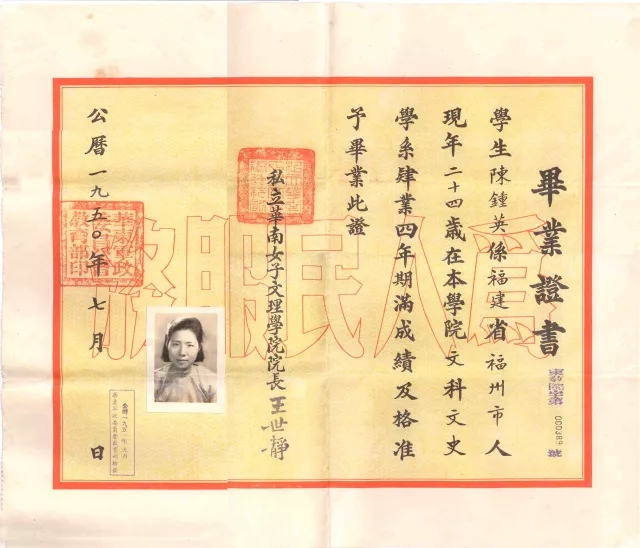 畢業證書
000389 號
學生陳鍾英係福建省福州市人
現年二十四歲在本學院文科文史
學系肄業四年期滿成績及格准
予畢業此證
私立華南女子文理學院院長王世靜
公曆一九五〇年七月 日
華東軍政委員會教育部印
爲人民服務